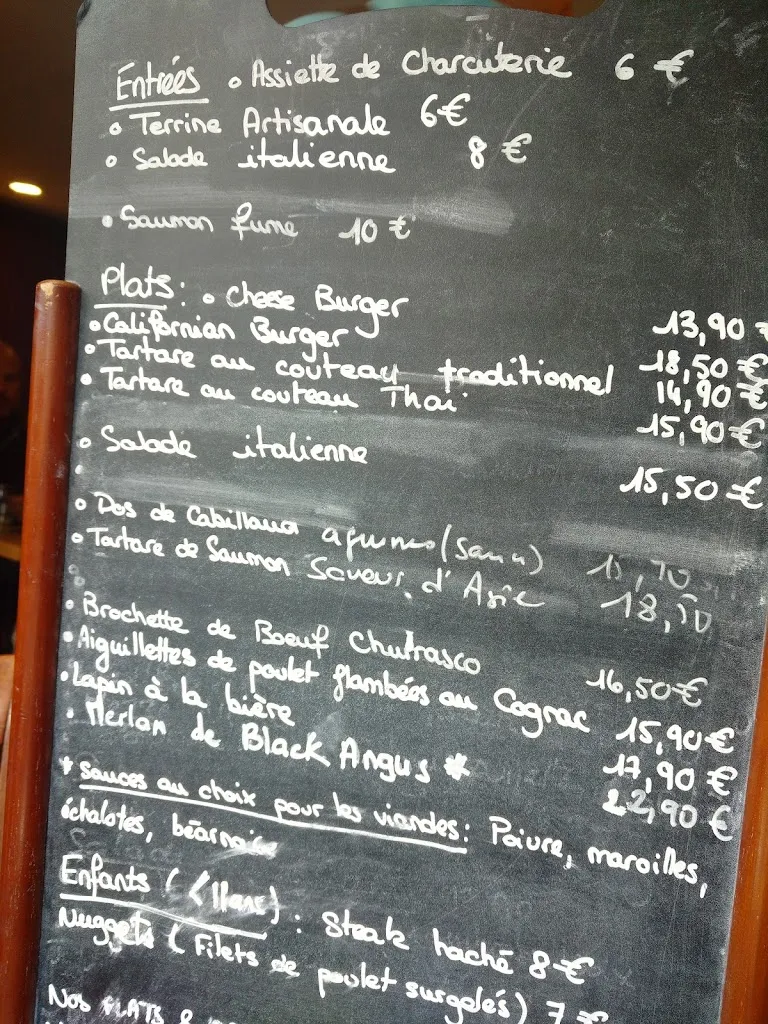 Entrées • Assiette de Charcuterie 6 €
• Terrine Artisanale 6€
• Salade italienne 8 €
• Saumon fume 10 €
Plats : • Cheese Burger 13,90
• Californian Burger 18,50 €
• Tartare au couteau traditionnel 14,90 €
• Tartare au couteau Thaï 15,90 €
• Salade italienne 15,50 €
• Dos de Cabillaud
• Tartare de Saumon Saveur d'Asie 18,50
• Brochette de Boeuf Churrasco 16,50 €
• Aiguillettes de poulet flambées au Cognac 15,90 €
• Lapin à la bière 17,90 €
• Merlan de Black Angus * 22,90 €
* Sauces au choix pour les viandes : Poivre, maroilles,
échalotes, béarnaise
Enfants (<11ans) : Steak haché 8 €
Nuggets (Filets de poulet surgelés) 7 €
Nos PLATS